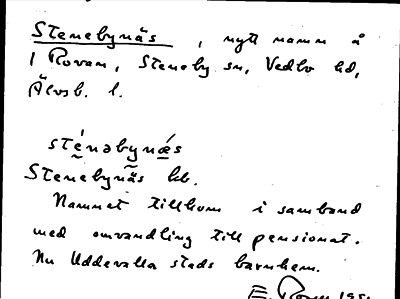 Stenebynäs, nytt namn å
1 Rovan, Steneby sn, Vedbo hd,
Älvsb. l.
sténəbynä́s
Stenebynäs bb.
Namnet tillkom i samband
med omvandling till pensionat.
Nu Uddevalla stads barnhem.